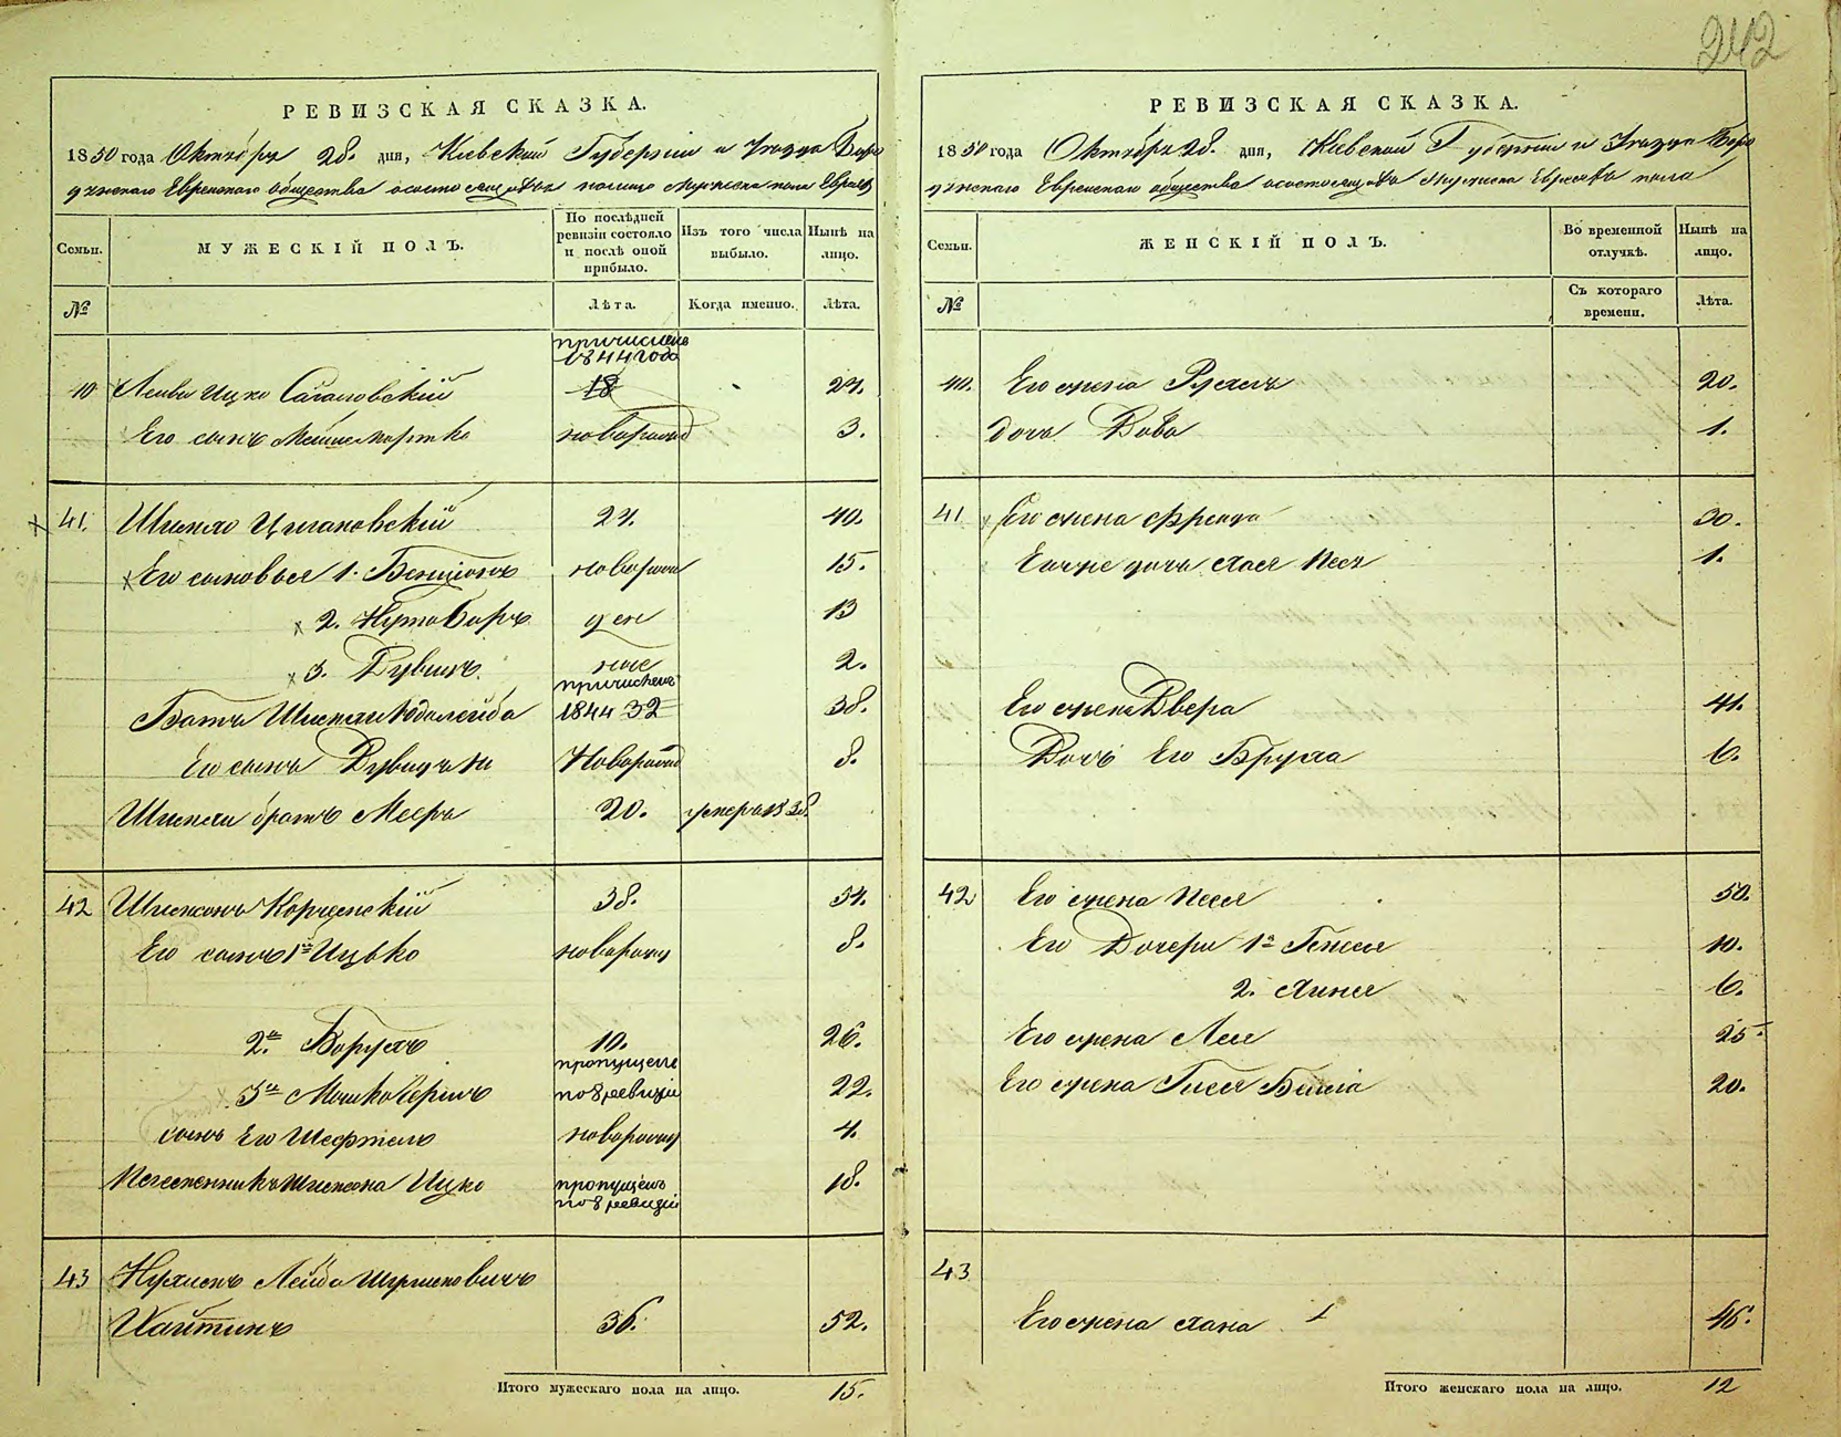 242
РЕВИЗСКАЯ СКАЗКА.
1850 года Октября 28. дня, Кіевской Губерніи и Уезда Боро
дянскаго Еврейскаго общества о состоящихъ мужеска пола Евреяхъ
Семьи.
МУЖЕСКІЙ ПОЛЪ.
По послѣдней ревизіи состояло и послѣ оной прибыло.
Изъ того числа выбыло.
Нынѣ на лицо.
№
Лѣта.
Когда именно.
Лѣта.
причисленъ
1844 года
40 Лейба Ицко Сагановскій 18 24.
Его сынъ Мошко новорожд 3.
41. Шмилю Цигановскій 24. 40.
Его сыновья 1. Бенціонъ новорож 15.
2. Нутоберъ ден 13
3. Дувинъ. ные 2.
причисленъ
Братъ Шмили Юдалейба 1844 32 38.
Его сынъ Дувидъ Новорожд 8.
Шмили братъ Мееръ 20. умеръ 1838.
42 Шимонъ Корценскій 38. 54.
Его сынъ 1й Ицько новорожд 8.
2й. Борухъ 10. 26.
пропущенъ
3й Мошко Гершъ по 8 ревизіи 22.
сынъ Его Шефтель новорожд 4.
Племенникъ Шимона Ицко пропущенъ 18.
по 8 ревизіи
43 Нухимъ Лейба Шулимовичъ
Хайтинъ 36. 52.
Итого мужескаго пола на лицо. 15.
РЕВИЗСКАЯ СКАЗКА.
1850 года Октября 28. дня, Кіевской Губерніи и Уезда Боро
дянскаго Еврейскаго общества о состоящихъ Евреевъ пола
Семьи.
ЖЕНСКІЙ ПОЛЪ.
Во временной отлучкѣ.
Нынѣ на лицо.
№
Съ котораго времени.
Лѣта.
40. Его жена Рухель 20.
дочь Доба 1.
41 Его жена Фрейда 30.
Его же дочь Хая Песя 1.
Его жена Двера 41.
Дочь Его Бруха 6.
42 Его жена Песя 50.
Его Дочери 1я Генеся 10.
2. Хинея 6.
Его жена Лея 25
Его жена Гися Бейла 20.
43
Его жена Хана 46.
Итого женскаго пола на лицо. 12